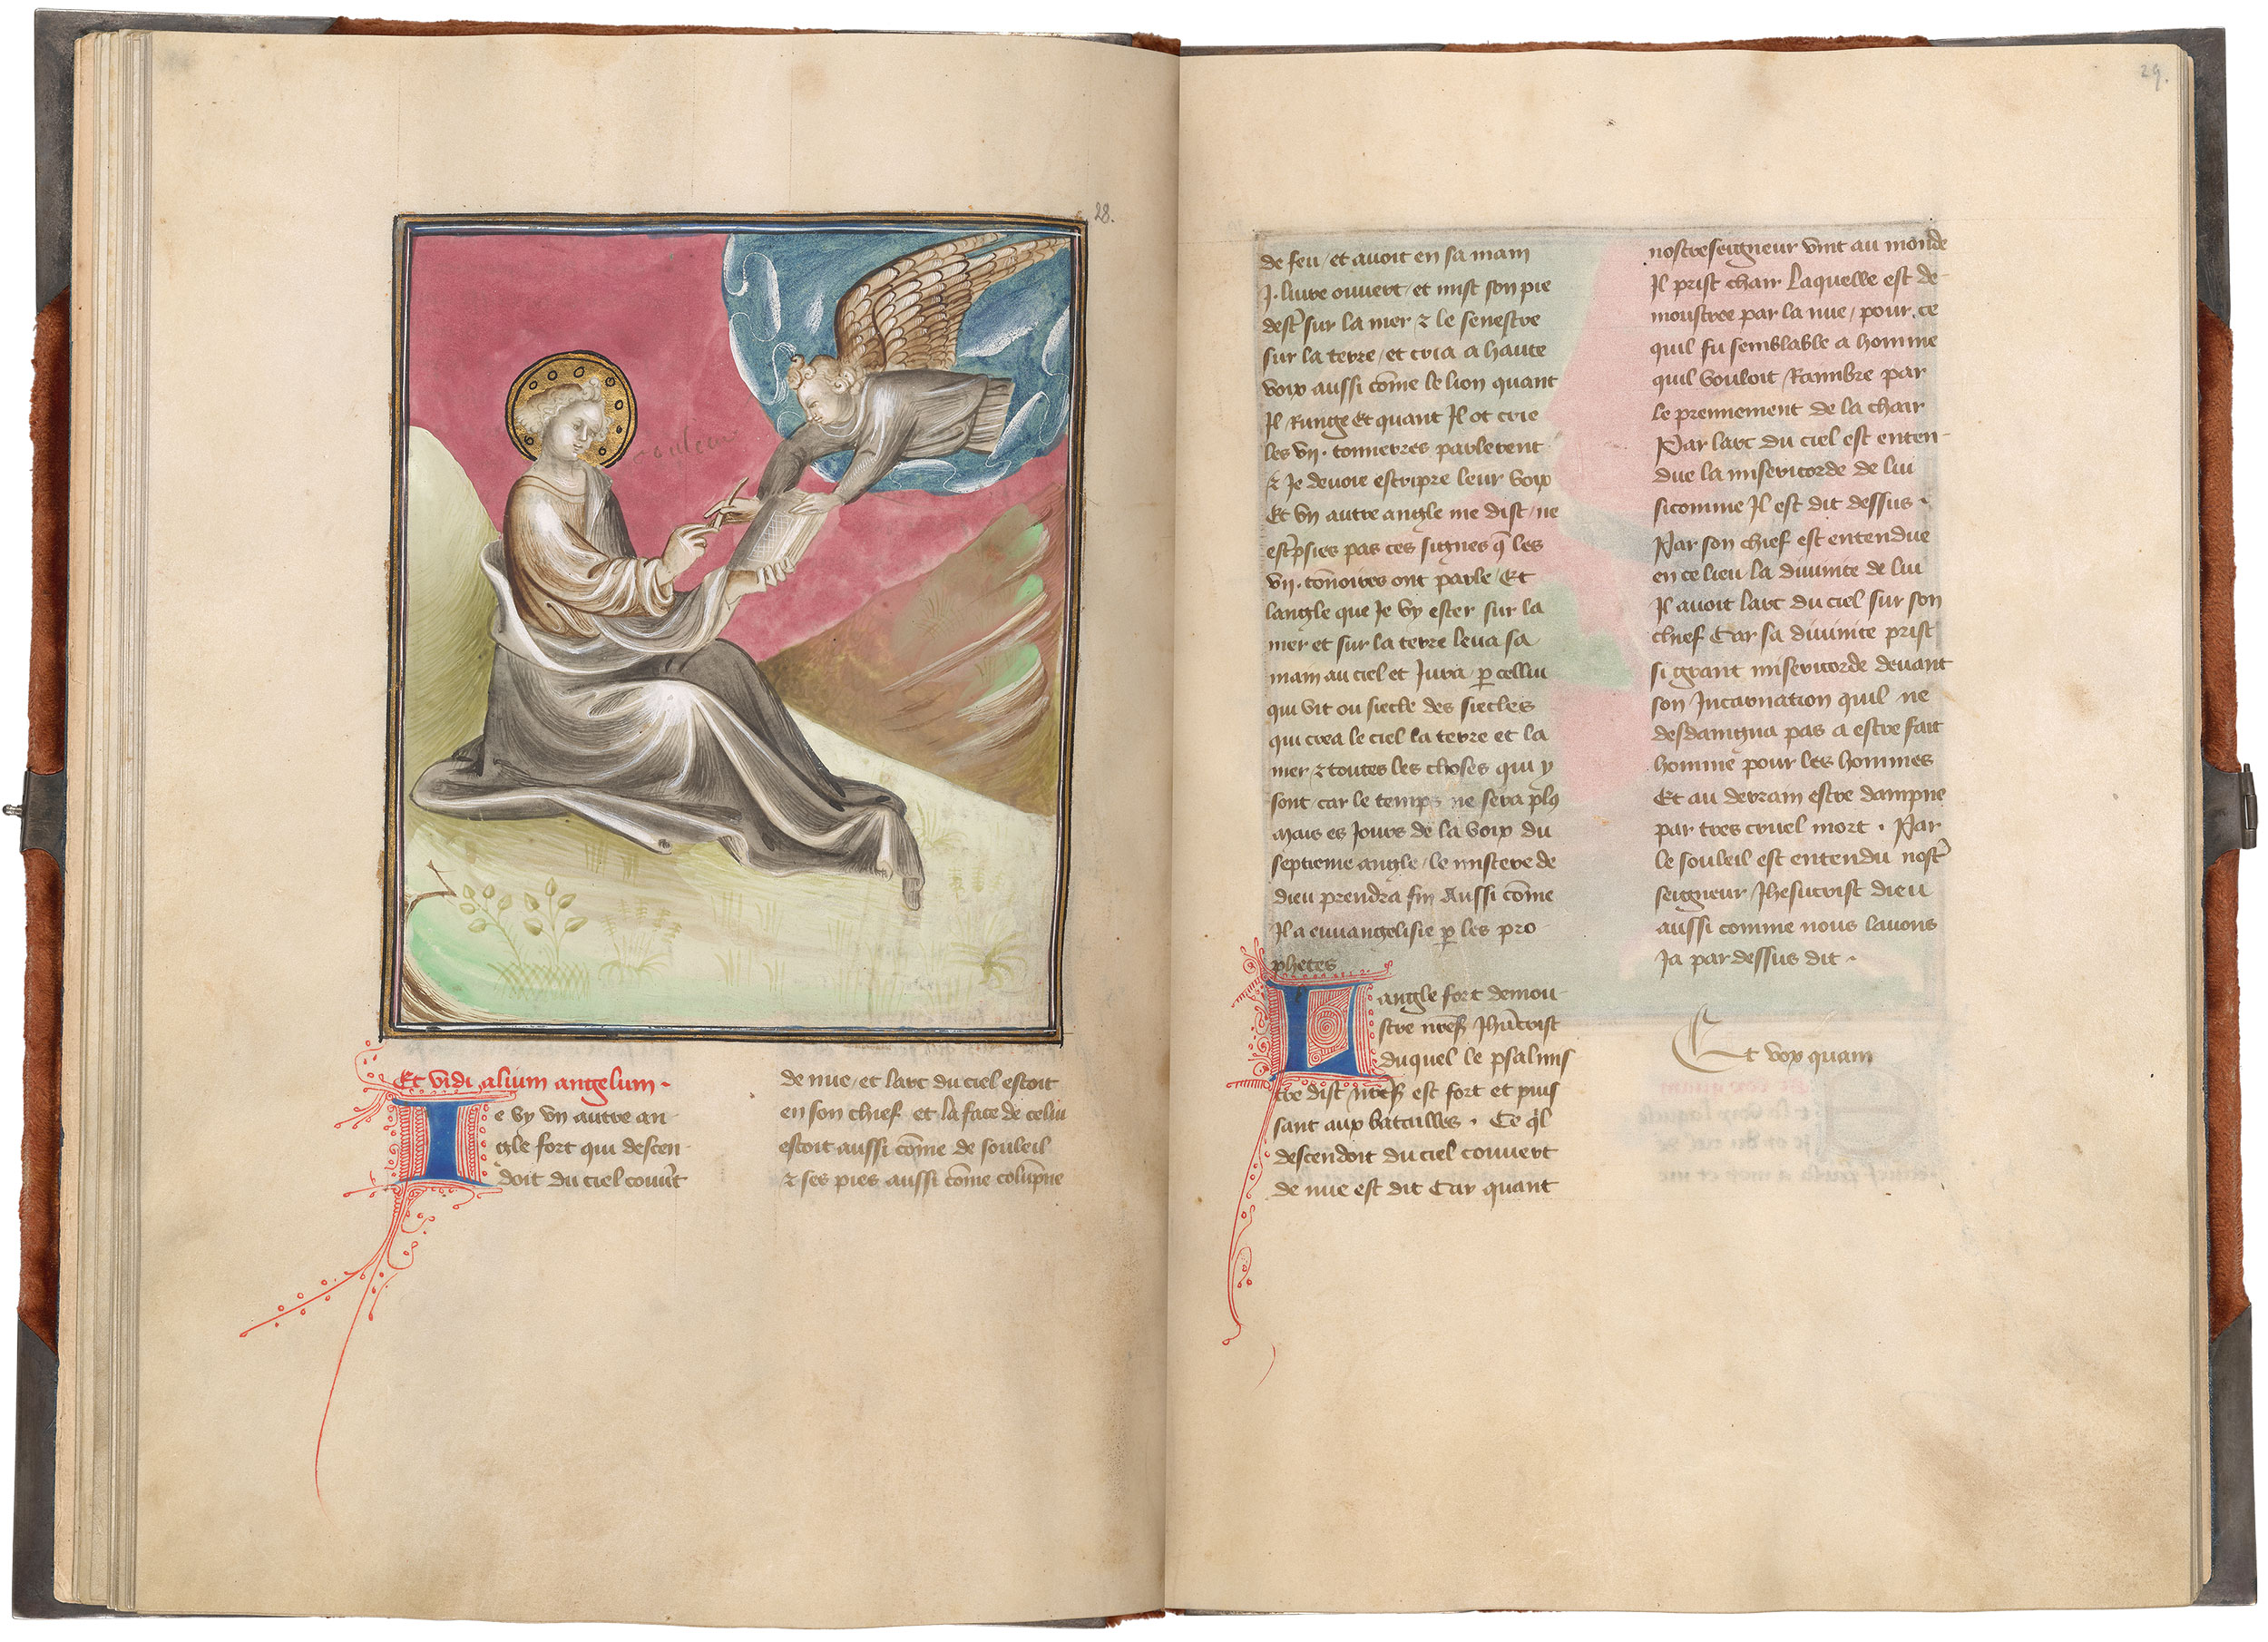 28.
Et vidi alium angelum.
Je vy vn autre an-
gle fort qui descen-
doit du ciel couu't
de nue/et larc du ciel estoit
en son chief et la face de celui
estoit aussi cōme de souleil
⁊ ses pies aussi cōme colūpne
29.
de feu/et auoit en sa main
J. liure ouuert/et mist son pie
dest' sur la mer ⁊ le senestre
sur la terre/et cria a haute
voix aussi cōme le lion quant
Jl Runge Et quant Jl ot crie
les vij. tonnerres parlerent
⁊ Je deuoie escripre leur voix
Et vn autre angle me dist/ne
escpsies pas ces signes q̄ les
vij. tōnoires ont parle/Et
langle que Je vy ester sur la
mer et sur la terre leua sa
main au ciel et Jura/ꝑ cellui
qui vit ou siecle des siecles
qui crea le ciel la terre et la
mer ⁊ toutes les choses qui y
sont car le temps ne sera plꝰ
Mais es Jours de la voix du
septieme angle/le mistere de
dieu prendra fin Aussi cōme
Jl a euuangelisie ꝑ les pro-
phetes
Langle fort demou-
stre nr̄es' Jhūcrist
duquel le psalmis
tre dist/nr̄es' est fort et puis
sant aux batailles. Ce q'l
descendoit du ciel couuert
de nue est dit Car quant
nostreseigneur vint au monde
Jl prist chair Laquelle est de-
moustree par la nue/pour.ce
quil fu semblable a homme
quil vouloit Raimbre par
le prennement de la chair
Par larc du ciel est enten-
due la misericorde de lui
sicomme Jl est dit dessus.
Par son chief est entendue
en ce lieu la diuinite de lui
Jl auoit larc du ciel sur son
chief Car sa diuinite prist
si grant misericorde deuant
son Jncarnation quil ne
desdaingna pas a estre fait
homme pour les hommes
Et au derrain estre dampne
par tres cruel mort. Par
le souleil est entendu nost'
seigneur Jhesucrist dieu
aussi comme nous lauons
Ja par dessus dit.
Et vox quam